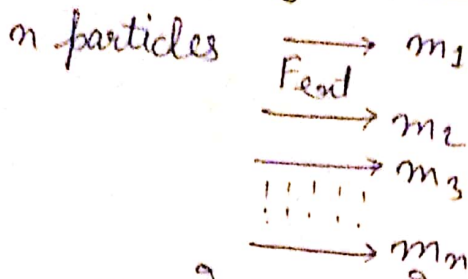 n particles → m1
Fext
→ m2
→ m3
→ mn